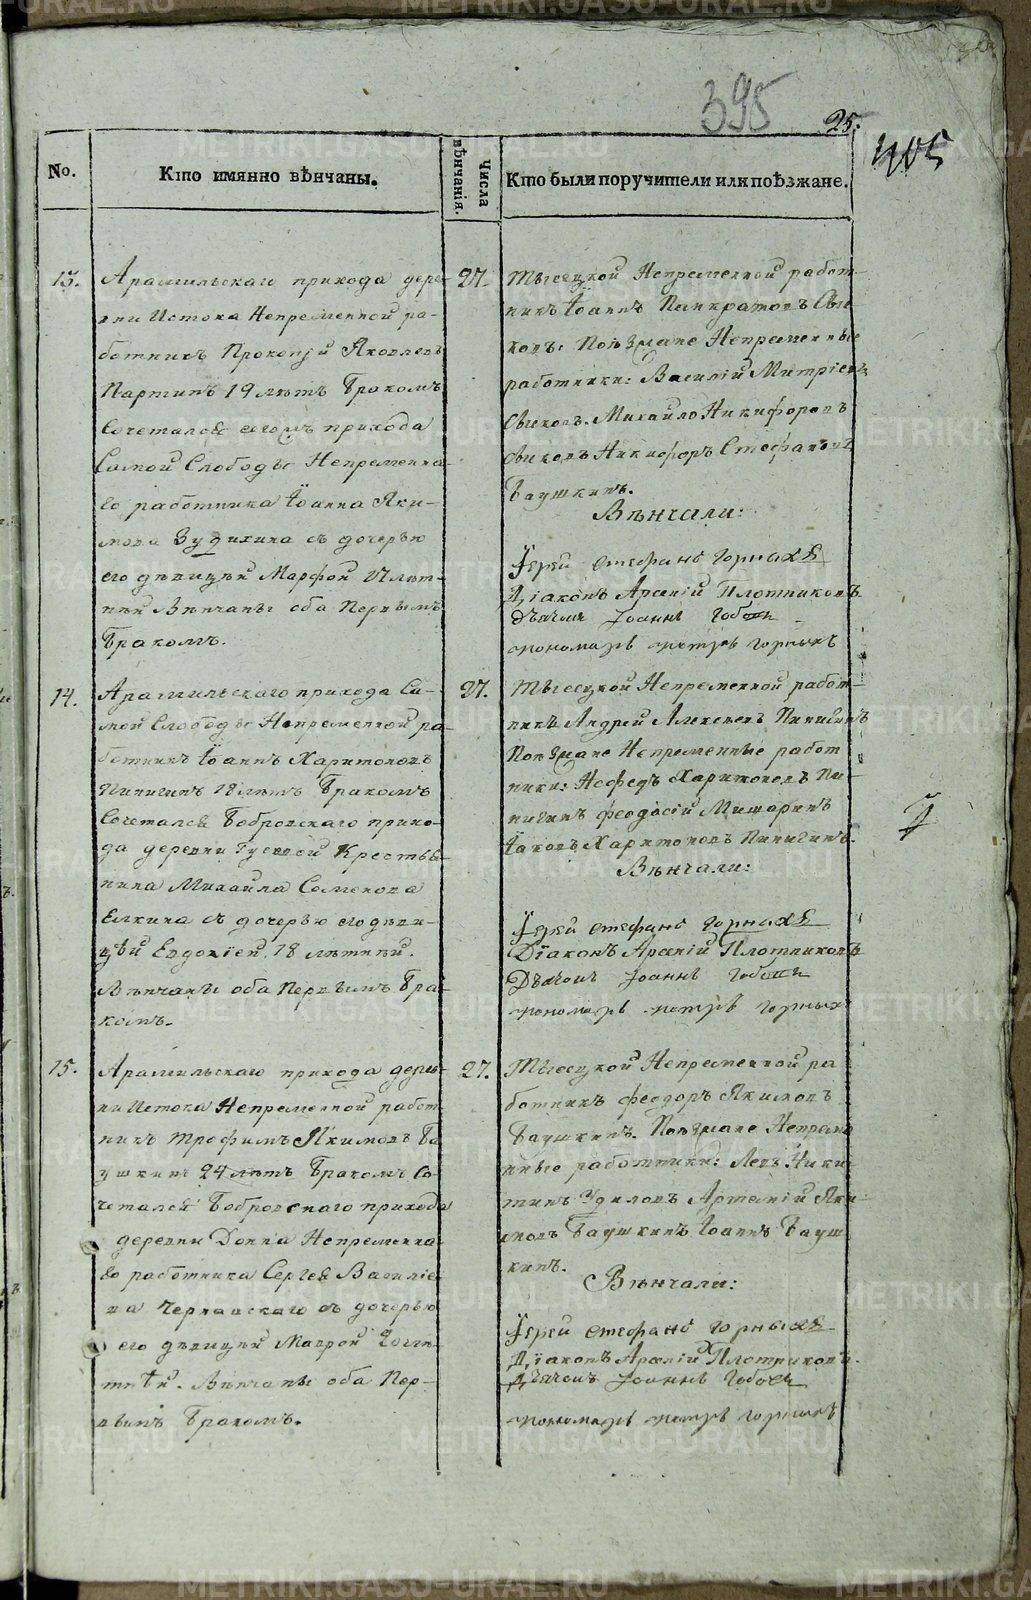 395
25.
405
No.
Кто имянно вѣнчаны.
Числа вѣнчанія.
Кто были поручители или поѣзжане.
13.
Арамильскаго прихода дере-
вни Истока Непременной ра-
ботникъ Прокопій Яковлевъ
Паршинъ 19 лѣтъ Бракомъ
Сочетался сего прихода
Самой Слободѣ Непременна-
го работника Іоанна Яки-
мова Зудихина съ дочерью
его дѣвицей Марфой 17 лѣт-
ней Вѣнчаны оба Первымъ
Бракомъ.
27.
Непременной работ-
никъ Іоаннъ Панкратовъ
Поѣзжане Непременные
работники: Василій Митріевъ
Михайло Никифоровъ
Никифоръ Стефановъ
Баушкинъ.
Вѣнчали:
Іерей Стефанъ Горныхъ
Діаконъ Арсеній Плотниковъ
Дьячокъ Іоаннъ
пономарь Петръ Горныхъ
14.
Арамильскаго прихода Са-
мой Слободѣ Непременной ра-
ботникъ Іоаннъ Харитоновъ
Пинигинъ 18 лѣтъ Бракомъ
Сочетался Бобровскаго прихо-
да деревни Гусевой Крестья-
нина Михаила Семенова
Елкина съ дочерью его дѣви-
цѣй Евдокіей 18 лѣтней.
Вѣнчаны оба Первымъ Бра-
комъ.
27.
Непременной работ-
никъ Андрей Алексеевъ Пинигинъ
Поѣзжане Непременные работ
ники: Нефедъ Харитоновъ Пи-
нигинъ Феодосій Мишаринъ
Іаковъ Харитоновъ Пинигинъ.
Вѣнчали:
Іерей Стефанъ Горныхъ
Діаконъ Арсеній Плотниковъ
Дьячокъ Іоаннъ
пономарь Петръ Горныхъ
15.
Арамильскаго прихода дерев-
ни Истока Непременной работ
никъ Трофимъ Якимовъ Ба
ушкинъ 24 лѣтъ Бракомъ Со-
четался Бобровскаго прихода
деревни Непременна-
го работника Сергея Василіе-
ва Чернавскаго съ дочерью
его дѣвицей Маврой 20 лѣ-
тней. Вѣнчаны оба Пер-
вымъ Бракомъ.
27.
Непременной ра
ботникъ Феодоръ Якимовъ
Баушкинъ. Поѣзжане Непреме
нные работники: Левъ Ники
тинъ Артемій Яки-
мовъ Баушкинъ Іоаннъ Бауш
кинъ.
Вѣнчали:
Іерей Стефанъ Горныхъ
Діаконъ Арсеній Плотниковъ
Дьячокъ Іоаннъ
пономарь Петръ Горныхъ
METRIKI.GASO-URAL.RU